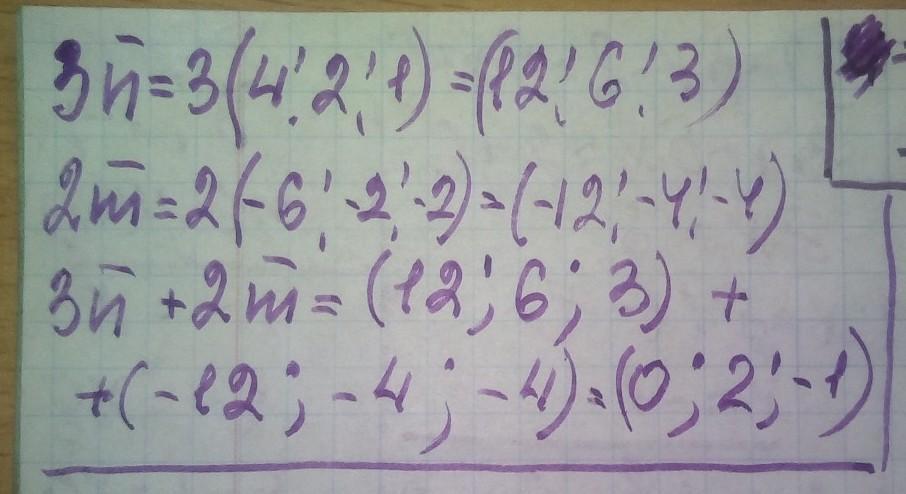 3n̄ = 3(4; 2; 1) = (12; 6; 3)
2m̄ = 2(-6; -2; -2) = (-12; -4; -4)
3n̄ + 2m̄ = (12; 6; 3) +
+(-12; -4; -4) = (0; 2; -1)